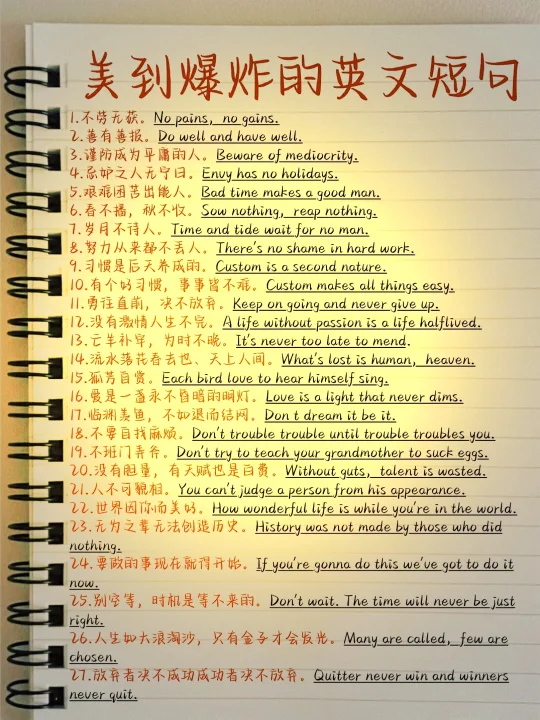 美到爆炸的英文短句
1.不劳无获。No pains, no gains.
2.善有善报。Do well and have well.
3.谨防成为平庸的人。Beware of mediocrity.
4.忌妒之人无宁日。Envy has no holidays.
5.艰难困苦出能人。Bad time makes a good man.
6.春不播，秋不收。Sow nothing, reap nothing.
7.岁月不待人。Time and tide wait for no man.
8.努力从来都不丢人。There's no shame in hard work.
9.习惯是后天养成的。Custom is a second nature.
10.有个好习惯，事事皆不难。Custom makes all things easy.
11.勇往直前，决不放弃。Keep on going and never give up.
12.没有激情人生不完。A life without passion is a life halflived.
13.亡羊补牢，为时不晚。It's never too late to mend.
14.流水落花春去也、天上人间。What's lost is human, heaven.
15.孤芳自赏。Each bird love to hear himself sing.
16.爱是一盏永不昏暗的明灯。Love is a light that never dims.
17.临渊羡鱼，不如退而结网。Don t dream it be it.
18.不要自找麻烦。Don't trouble trouble until trouble troubles you.
19.不班门弄斧。Don't try to teach your grandmother to suck eggs.
20.没有胆量，有天赋也是白费。Without guts, talent is wasted.
21.人不可貌相。You can't judge a person from his appearance.
22.世界因你而美好。How wonderful life is while you're in the world.
23.无为之辈无法创造历史。History was not made by those who did
nothing.
24.要做的事现在就得开始。If you're gonna do this we've got to do it
now.
25.别空等，时机是等不来的。Don't wait. The time will never be just
right.
26.人生如大浪淘沙，只有金子才会发光。Many are called, few are
chosen.
27.放弃者决不成功成功者决不放弃。Quitter never win and winners
never quit.